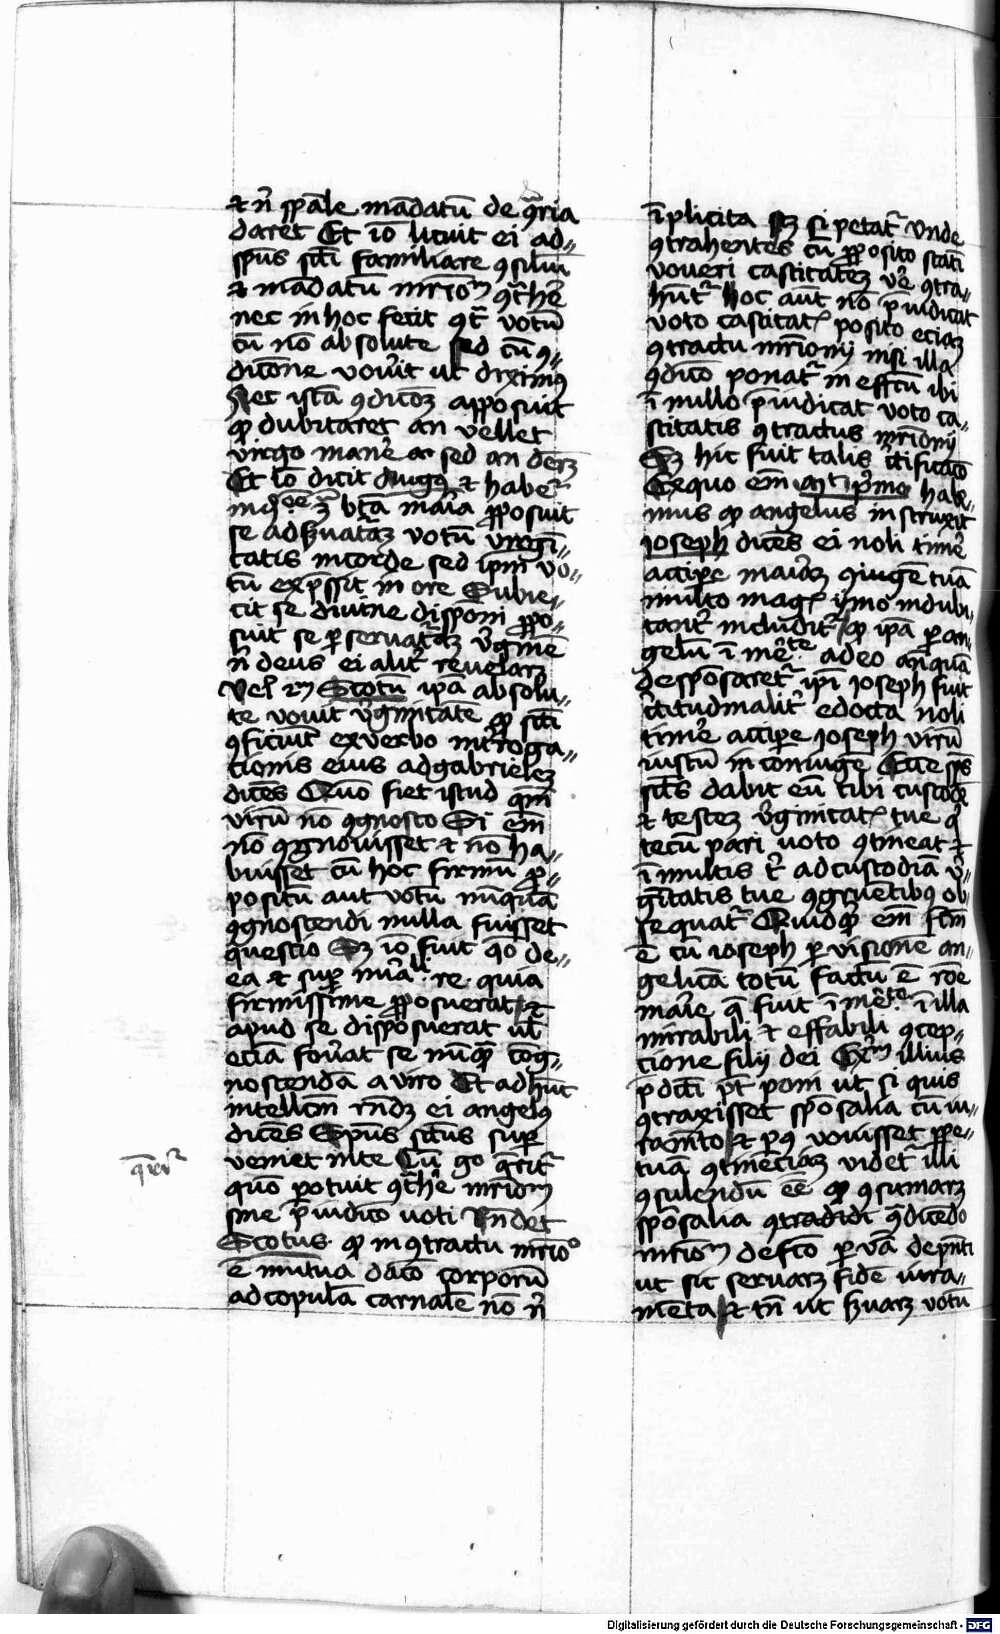 ⁊ nͥ sp̄ale mādatū de 9̄ria
daret Et iō licuit ei ad〃
sp̄us sc̄ti familiare 9siliū
⁊ mādatū mr̄ioᷠ 9t̄he
nec in hoc fecit 9t̄ votū
cū nō absolute sed cū 9〃
dicōne vovit ut dixim9
Nec istā 9dicōꝫ apposuit
ꝙ dubitaret an vellet
virgo mane sed an deꝫ
Et iō dicit ⁊ habet
bt̄a maīa ꝓposuit
se ad votū virgi〃
tatis in corde sed ip̄m vo〃
tū exp̄ssit in ore Subie〃
cit se divine disponi ꝓpo〃
suit se ꝑ servat̄aꝫ v̓ginē
nͥ deus ei alit̓ revelaꝫ
Vel Scotū ip̄a absolu〃
te vovit v̓ginitatē ꝙ sc̄ti
9ficiūt ex verbo int̓roga〃
tionis eius ad gabrieleꝫ
dicēs Quō fiet istud qm̄
virū nō 9gnosco Si em̄
nō 9gnovisset ⁊ nō ha〃
buisset cū hoc firmū ꝓ〃
positū aut votū nūquā
9gnoscendi nulla fuisset
questio Sꝫ iō fuit q̄o de〃
ea ⁊ suꝑ mirali re quia
firmissime ꝓposuerat ⁊
apud se disposuerat ul̄
eciā foverat se nūqꝫ cog〃
noscendā a viro Et ad hūc
intellc̄m rn̄dꝫ ei angel9
dicēs Sp̄us sc̄tus suꝑ
veniet in te Cū ḡo q̄rit̓
quō potuit 9t̄he mr̄ioᷠ
sine p̄iudicō voti Rn̄det
Scotus ꝙ in 9tractu mr̄ioº
ē mutua dacō corporū
ad copulā carnalē nō nͥ
q̄rit̓
īplicita sꝫ si petat̓ Unde
9trahentes cū ꝓposito stati
voveri castitateꝫ ve 9tra〃
hūt̓ hoc aut nō p̄iudicat
voto castitat̓ posito eciaꝫ
9tractu mr̄ionij nisi illa
9dicō ponat̓ in effc̄tu ibi
ī nullo p̄iudicat voto ca〃
stitatis 9tractus mr̄ionij
Sꝫ hic fuit talis c̓tificacō
Ex quo em̄ habe〃
mus ꝙ angelus instruxit
Joseph dicēs ei noli timē
accipe maīaꝫ 9iugē tuā
multo mag̓ ymo indubi
tant̓ includit̓ ꝙ ip̄a ꝑ an〃
gelū adeo anq̄uā
desponsaret̓ ip̄i Joseph fuit
c̓titudinalit̓ edocta noli
timē accipe Joseph virū
iustū in coniugē Ecce sp̄s
sc̄ts dabit eū tibi custodē
⁊ testeꝫ v̓ginitat̓ tue q̓
tecū pari voto 9tineat ⁊
ī multis ad custodiā v̓〃
ginitatis tue 9gruētib9 ob〃
sequat̓ Quidqꝫ em̄ fc̄tm
ē cū Joseph ꝑ visionē an〃
gelicā totū factū ē rōe
maīe q̄ fuit ī illa
mirabili ⁊ effabili 9cep〃
tione filij dei Exm̄ illius
p̄dc̄ti pōt poni ut si quis
9traxisset spōsalia cū iu〃
ramēto ⁊ p9 vovisset ꝑpe〃
tuā 9tinēciaꝫ videt̓ illi
9sulendū eē ꝙ 9sumaꝫ
spōsalia 9tradidi 9dicēdo
mr̄ioᷠ de fc̄o ꝑ vā dep̄nti
ut sic servaꝫ fidē iura〃
mēta ⁊ tn̄ ut svaꝫ votū
Digitalisierung gefördert durch die Deutsche Forschungsgemeinschaft - DFG